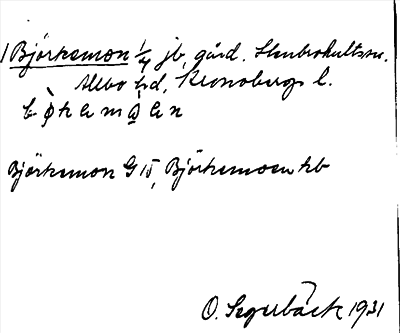 1 Björkemon 1/4 jb, gård. Stenbrohults sn.
Allbo hd, Kronobergs l.
Björkemon G 15, Björkemoen kb
O. Segerbäck 1931